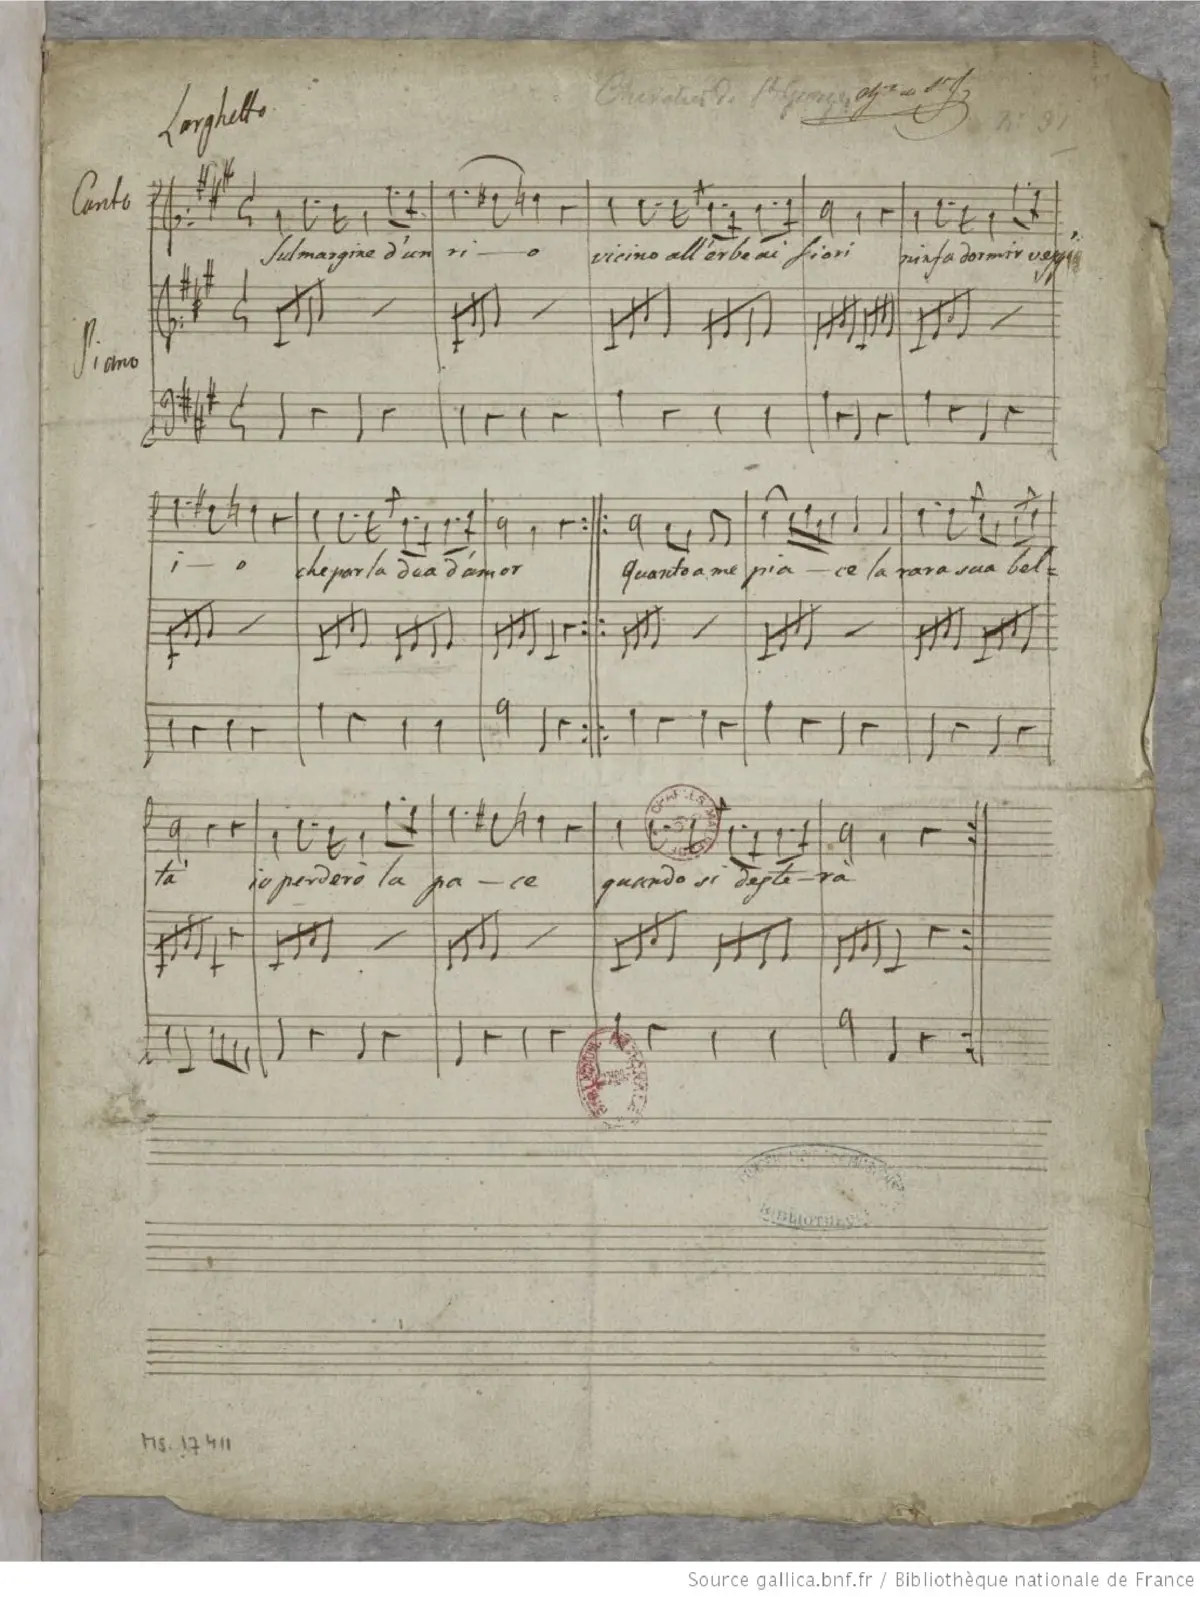 Chevalier de St Georges
N° 91
Larghetto
Canto
Sul margine d'un ri—o vicino all'erbe ai fiori ninfa dormir veggi
Piano
i—o che parla dea d'amor quanto a me pia—ce la rara sua bel=
tà io perderò la pa—ce quando si deste—rà
BIBLIOTHE
Ms. 17411
Source gallica.bnf.fr / Bibliothèque nationale de France